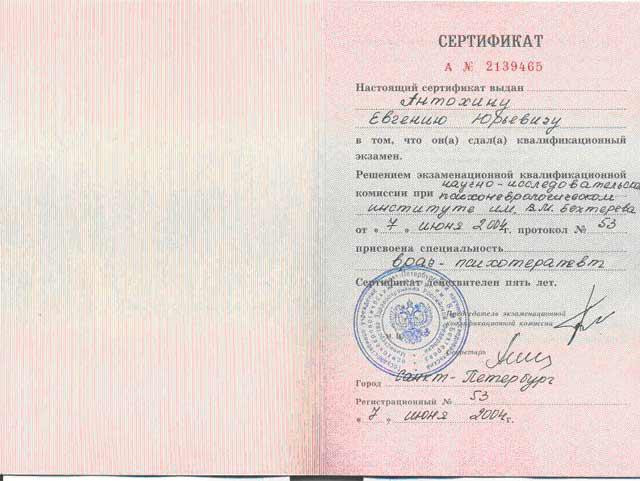 СЕРТИФИКАТ
А № 2139465
Настоящий сертификат выдан
Антохину
Евгению Юрьевичу
в том, что он(а) сдал(а) квалификационный
экзамен.
Решением экзаменационной квалификационной
научно-исследовательск
комиссии при психоневрологическом
институте им. В.М. Бехтерева
от « 7 » июня 2004 г. протокол № 53
присвоена специальность
врач - психотерапевт
Сертификат действителен пять лет.
Председатель экзаменационной
квалификационной комиссии
Секретарь
Город Санкт-Петербург
Регистрационный № 53
« 7 » июня 2004 г.